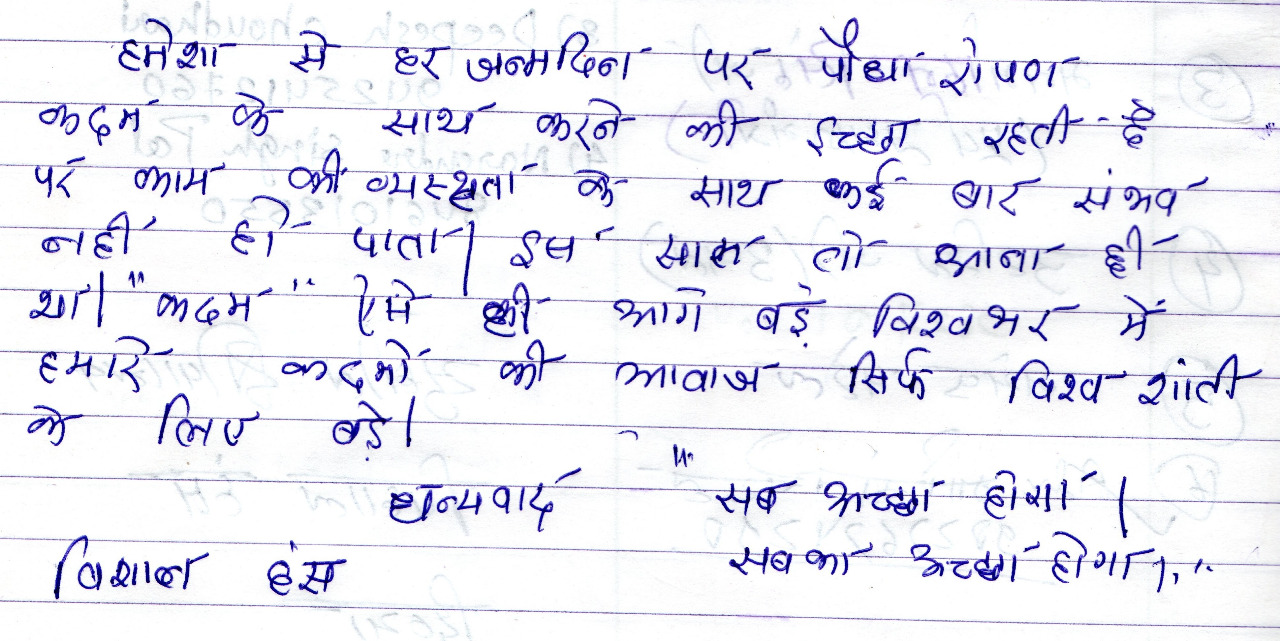 हमेशा से हर जन्मदिन पर पौधा रोपण
कदम के साथ करने की इच्छा रहती है
पर काम की व्यस्थता के साथ कई बार संभव
नहीं हो पाता| इस साल तो आना ही
था| "कदम" ऐसे ही आगे बड़े विश्वभर में
हमारे कदमों की आवाज सिर्फ विश्व शांती
के लिए बड़े|
धन्यवाद "सब अच्छा होगा|
विशाल हंस सबका अच्छा होगा|"